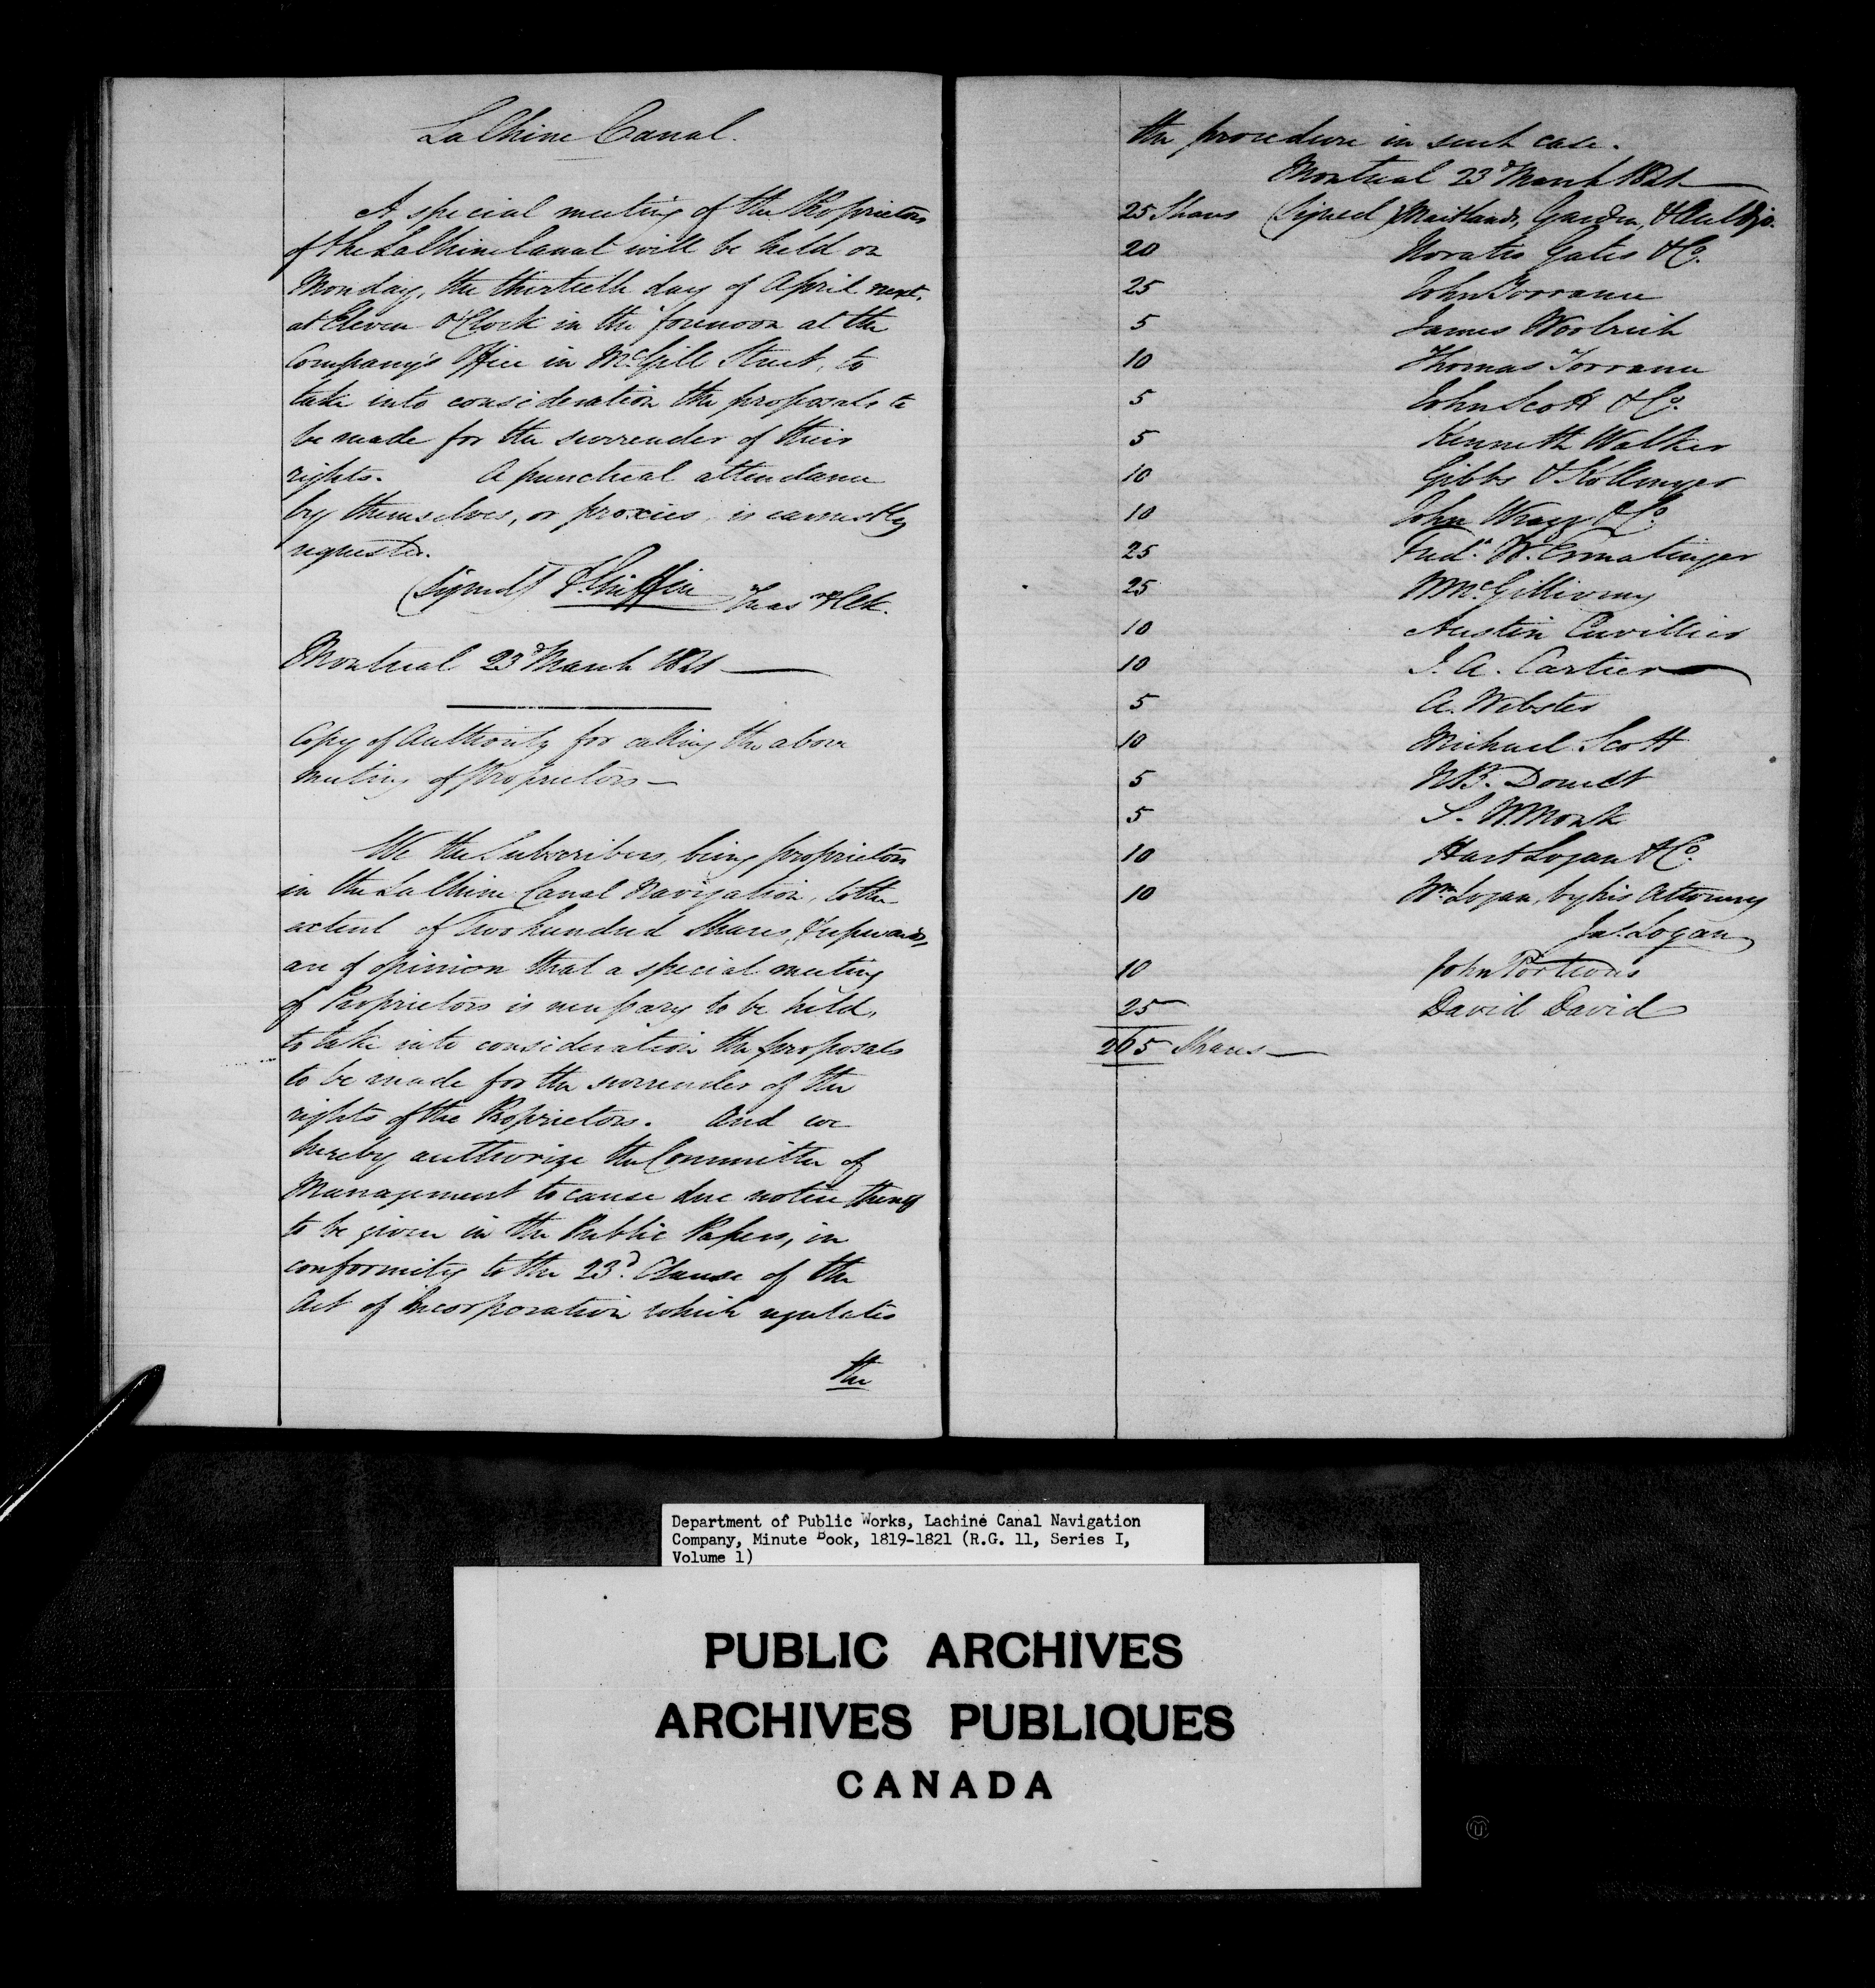 LaChine Canal.
A special meeting of the Proprietors
of the LaChine Canal will be held on
Monday, the thirtieth day of April next,
at Eleven O'Clock in the forenoon at the
Company's Office in McGill Street, to
take into consideration the proposals to
be made for the surrender of their
rights. A punctual attendance
by themselves, or proxies, is earnestly
requested.
(Signed) T. Griffin Treas & Clk.
Montreal 23d March 1821
Copy of Authority for calling the above
meeting of Proprietors
We the Subscribers, being proprietors
in the LaChine Canal Navigation, to the
extent of Two hundred Shares, & upwards,
are of opinion that a special meeting
of Proprietors is necessary to be held,
to take into consideration the proposals
to be made for the surrender of the
rights of the Proprietors. And we
hereby authorize the Committee of
Management to cause due notice thereof
to be given in the Public Papers, in
conformity to the 23d. Clause of the
Act of Incorporation which regulates
the
the procedure in such case.
Montreal 23d March 1821
25 Shares (Signed) Maitland, Garden, & Auldjo.
20 Horatio Gates & Co.
25 John Torrance
5 James Woolrich
10 Thomas Torrance
5 John Scott & Co.
5 Kenneth Walker
10 Gibbs & Kollmyer
10 John Wragg & Co.
25 Fredk. W. Ermatinger
25 W McGillivray
10 Austin Cuvillier
10 J. A. Cartier
5 A. Webster
10 Michael Scott
5 N B. Doucet
5 S. W. Monk
10 Hart Logan & Co.
10 Wm Logan, by his Attorney
Jas. Logan
10 John Porteous
25 David David
265 Shares
Department of Public Works, Lachine Canal Navigation
Company, Minute Book, 1819-1821 (R.G. 11, Series I,
Volume 1)
PUBLIC ARCHIVES
ARCHIVES PUBLIQUES
CANADA